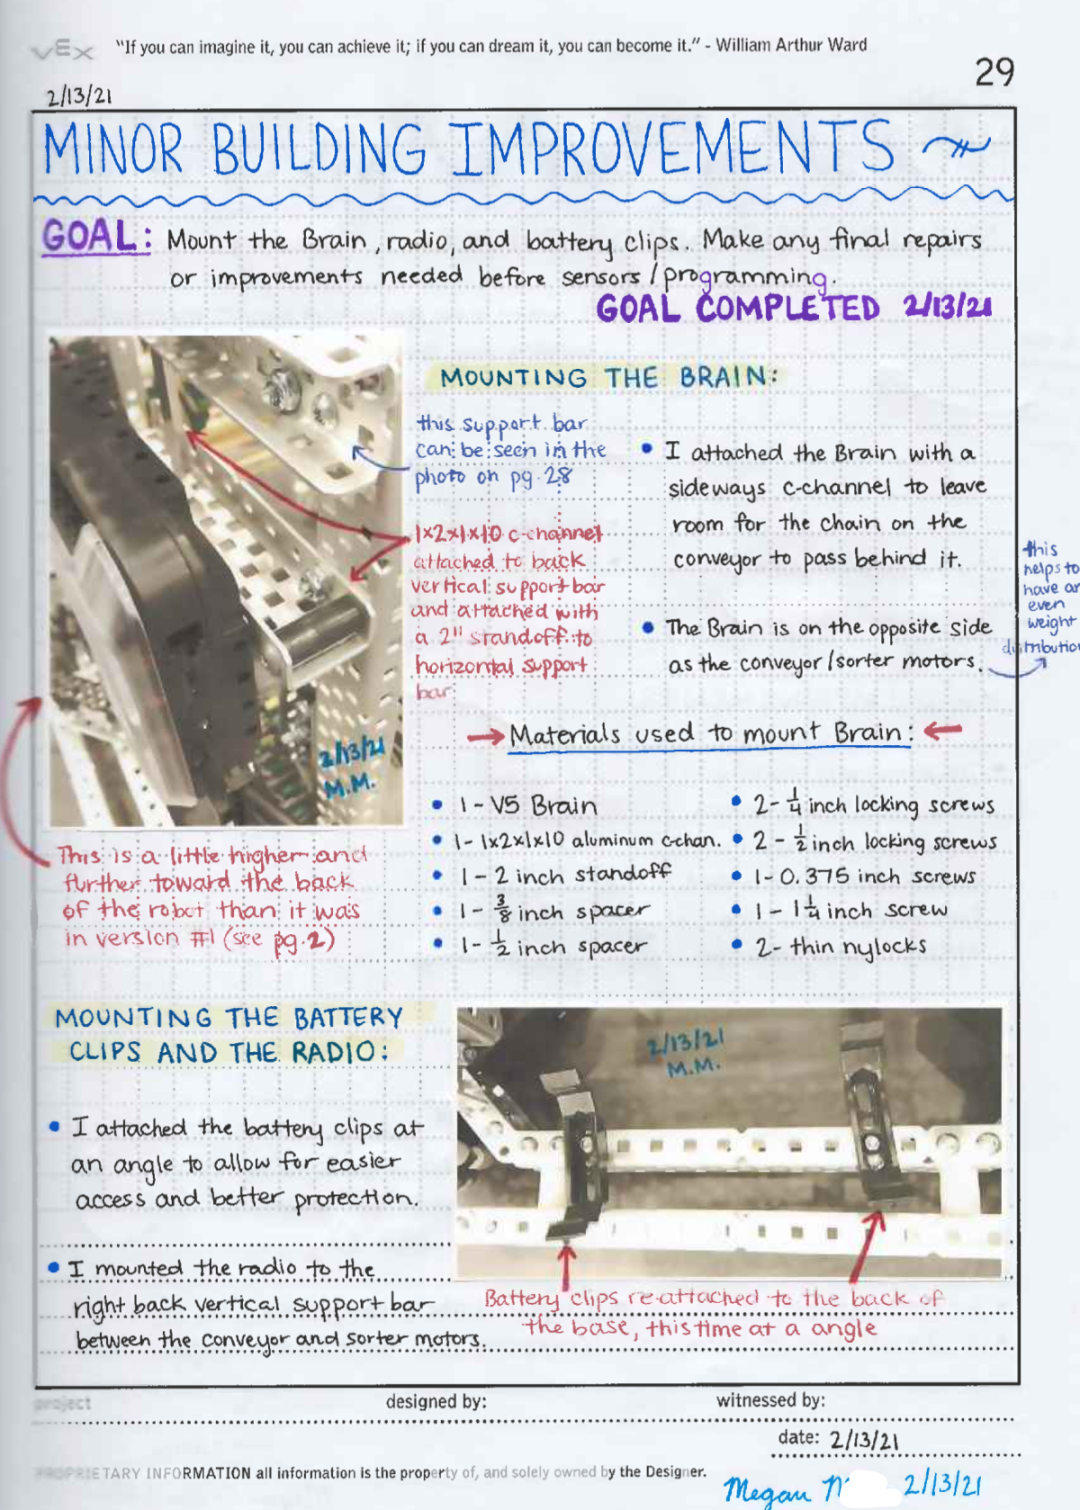 VEX
"If you can imagine it, you can achieve it; if you can dream it, you can become it." - William Arthur Ward
29
2/13/21
MINOR BUILDING IMPROVEMENTS
GOAL: Mount the Brain, radio, and battery clips. Make any final repairs
or improvements needed before sensors/programming.
GOAL COMPLETED 2/13/21
MOUNTING THE BRAIN:
this support bar
can be seen in the
photo on pg. 28
1x2x1x10 c-channel
attached to back
vertical support bar
and attached with
a 2" standoff to
horizontal support
bar
• I attached the Brain with a
sideways c-channel to leave
room for the chain on the
conveyor to pass behind it.
• The Brain is on the opposite side
as the conveyor/sorter motors.
this
helps to
have an
even
weight
distribution
2/13/21
M.M.
This is a little higher and
further toward the back
of the robot than it was
in version #1 (see pg. 2)
→ Materials used to mount Brain: ←
• 1 - V5 Brain
• 1 - 1x2x1x10 aluminum c-chan.
• 1 - 2 inch standoff
• 1 - 3/8 inch spacer
• 1 - 1/2 inch spacer
• 2 - 1/4 inch locking screws
• 2 - 1/2 inch locking screws
• 1 - 0.375 inch screws
• 1 - 1 1/4 inch screw
• 2 - thin nylocks
MOUNTING THE BATTERY
CLIPS AND THE RADIO:
• I attached the battery clips at
an angle to allow for easier
access and better protection.
• I mounted the radio to the
right back vertical support bar
between the conveyor and sorter motors.
2/13/21
M.M.
Battery clips re-attached to the back of
the base, this time at a angle
project
designed by:
witnessed by:
date: 2/13/21
PROPRIETARY INFORMATION all information is the property of, and solely owned by the Designer.
Megan 2/13/21